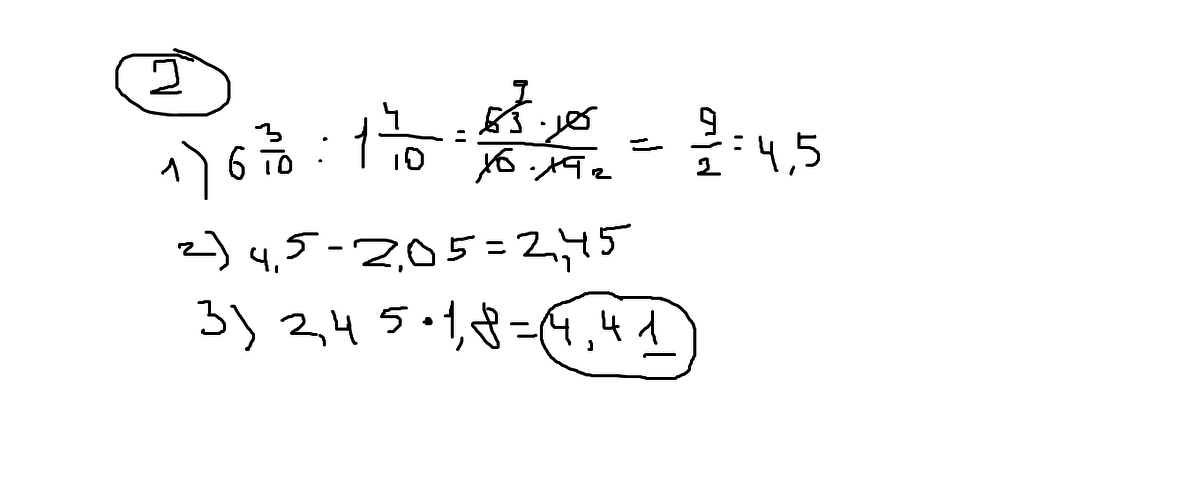 2
1) 6 3/10 : 1 4/10 = 63 9 · 10 / 10 · 14 2 = 9/2 = 4,5
2) 4,5 - 2,05 = 2,45
3) 2,45 · 1,8 = 4,41